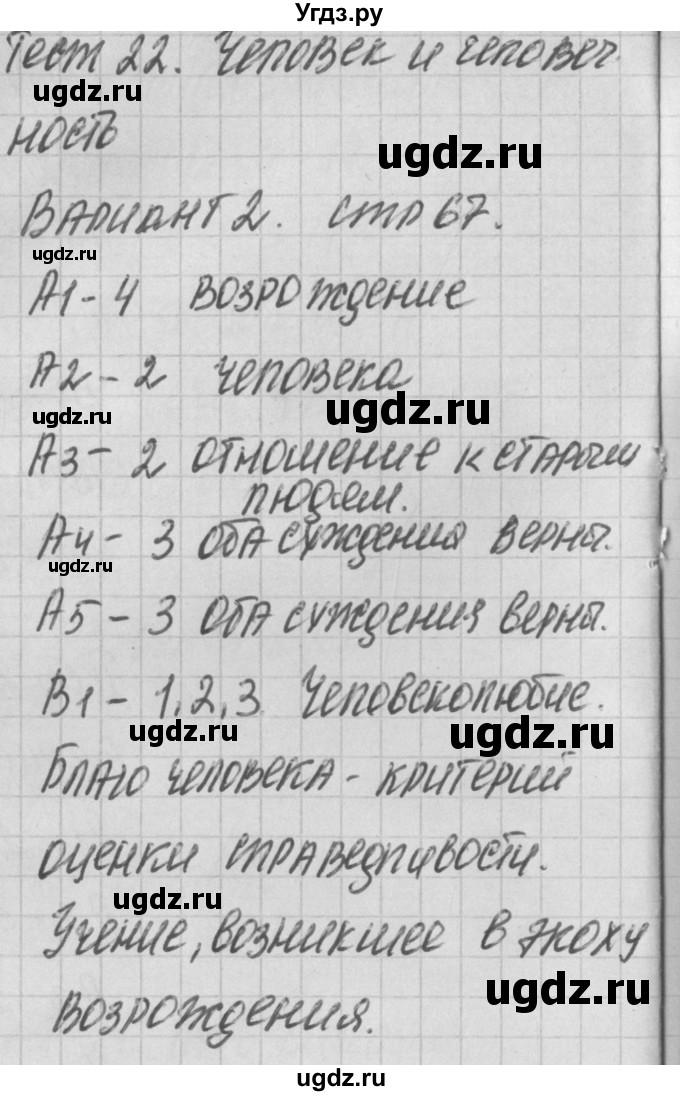 Угдз.ру
Тест 22. Человек и человеч
ugdz.ru
ность
ugdz.ru
Вариант 2. стр 67.
ugdz.ru
А1 - 4 Возрождение
А2 - 2 человека
ugdz.ru
ugdz.ru
А3 - 2 отношение к старым
людям.
А4 - 3 оба суждения верны.
ugdz.ru
А5 - 3 оба суждения верны.
В1 - 1,2,3 Человеколюбие.
ugdz.ru
ugdz.ru
Благо человека - критерий
оценки справедливости.
ugdz.ru
Учение, возникшее в эпоху
ugdz.ru
Возрождения.
ugdz.ru